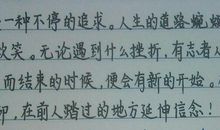 一种不停的追求。人生的道路蜿蜒
欢笑。无论遇到什么挫折，有志者
而结束的时候，便会有新的开始。
印，在前人踏过的地方延伸信念！